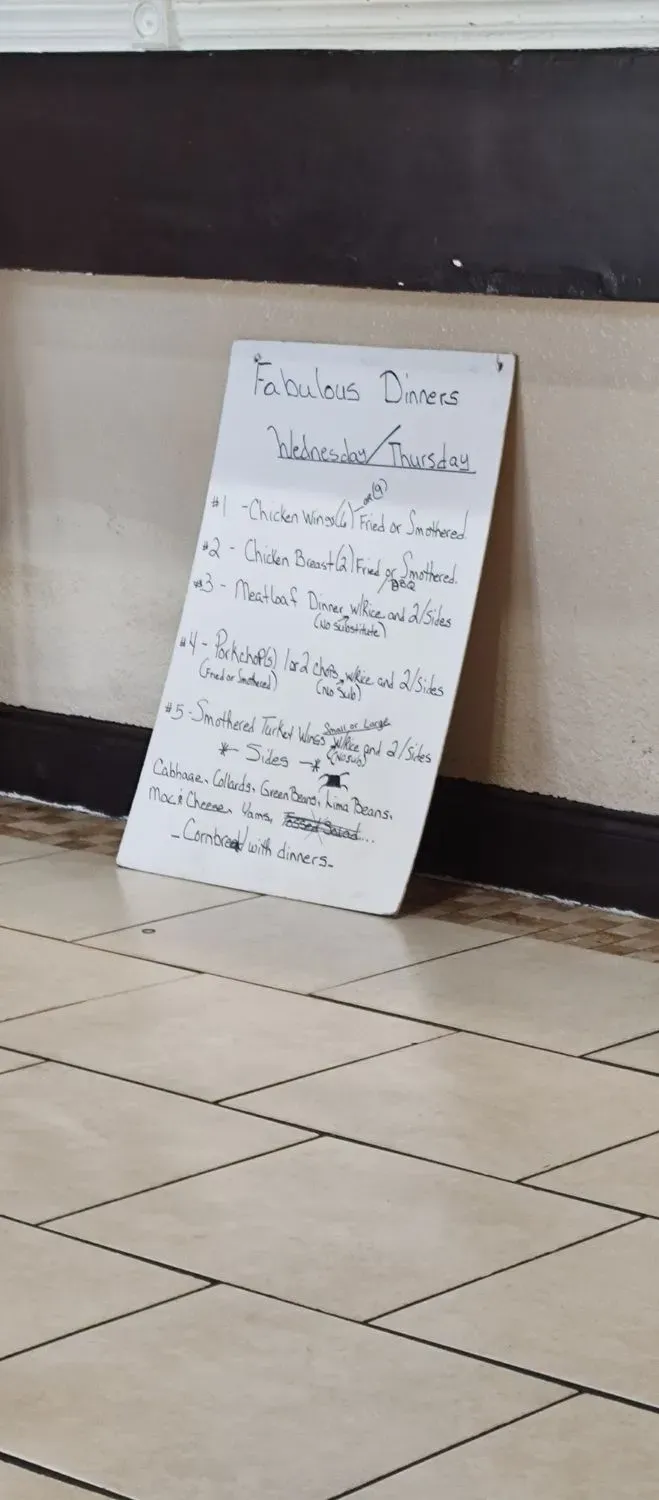 Fabulous Dinners
Wednesday/Thursday
or (9)
#1 - Chicken Wings (6) Fried or Smothered
#2 - Chicken Breast (2) Fried or Smothered.
/BBQ
#3 - Meatloaf Dinner w/Rice and 2/Sides
(No Substitute)
#4 - Porkchop(s) 1 or 2 chops w/Rice and 2/Sides
(Fried or Smothered) (No Sub)
Small or Large
#5 - Smothered Turkey Wings w/Rice and 2/Sides
(No sub)
* Sides *
Cabbage, Collards, Green Beans, Lima Beans,
Mac & Cheese, Yams, Tossed Salad...
- Cornbread with dinners -